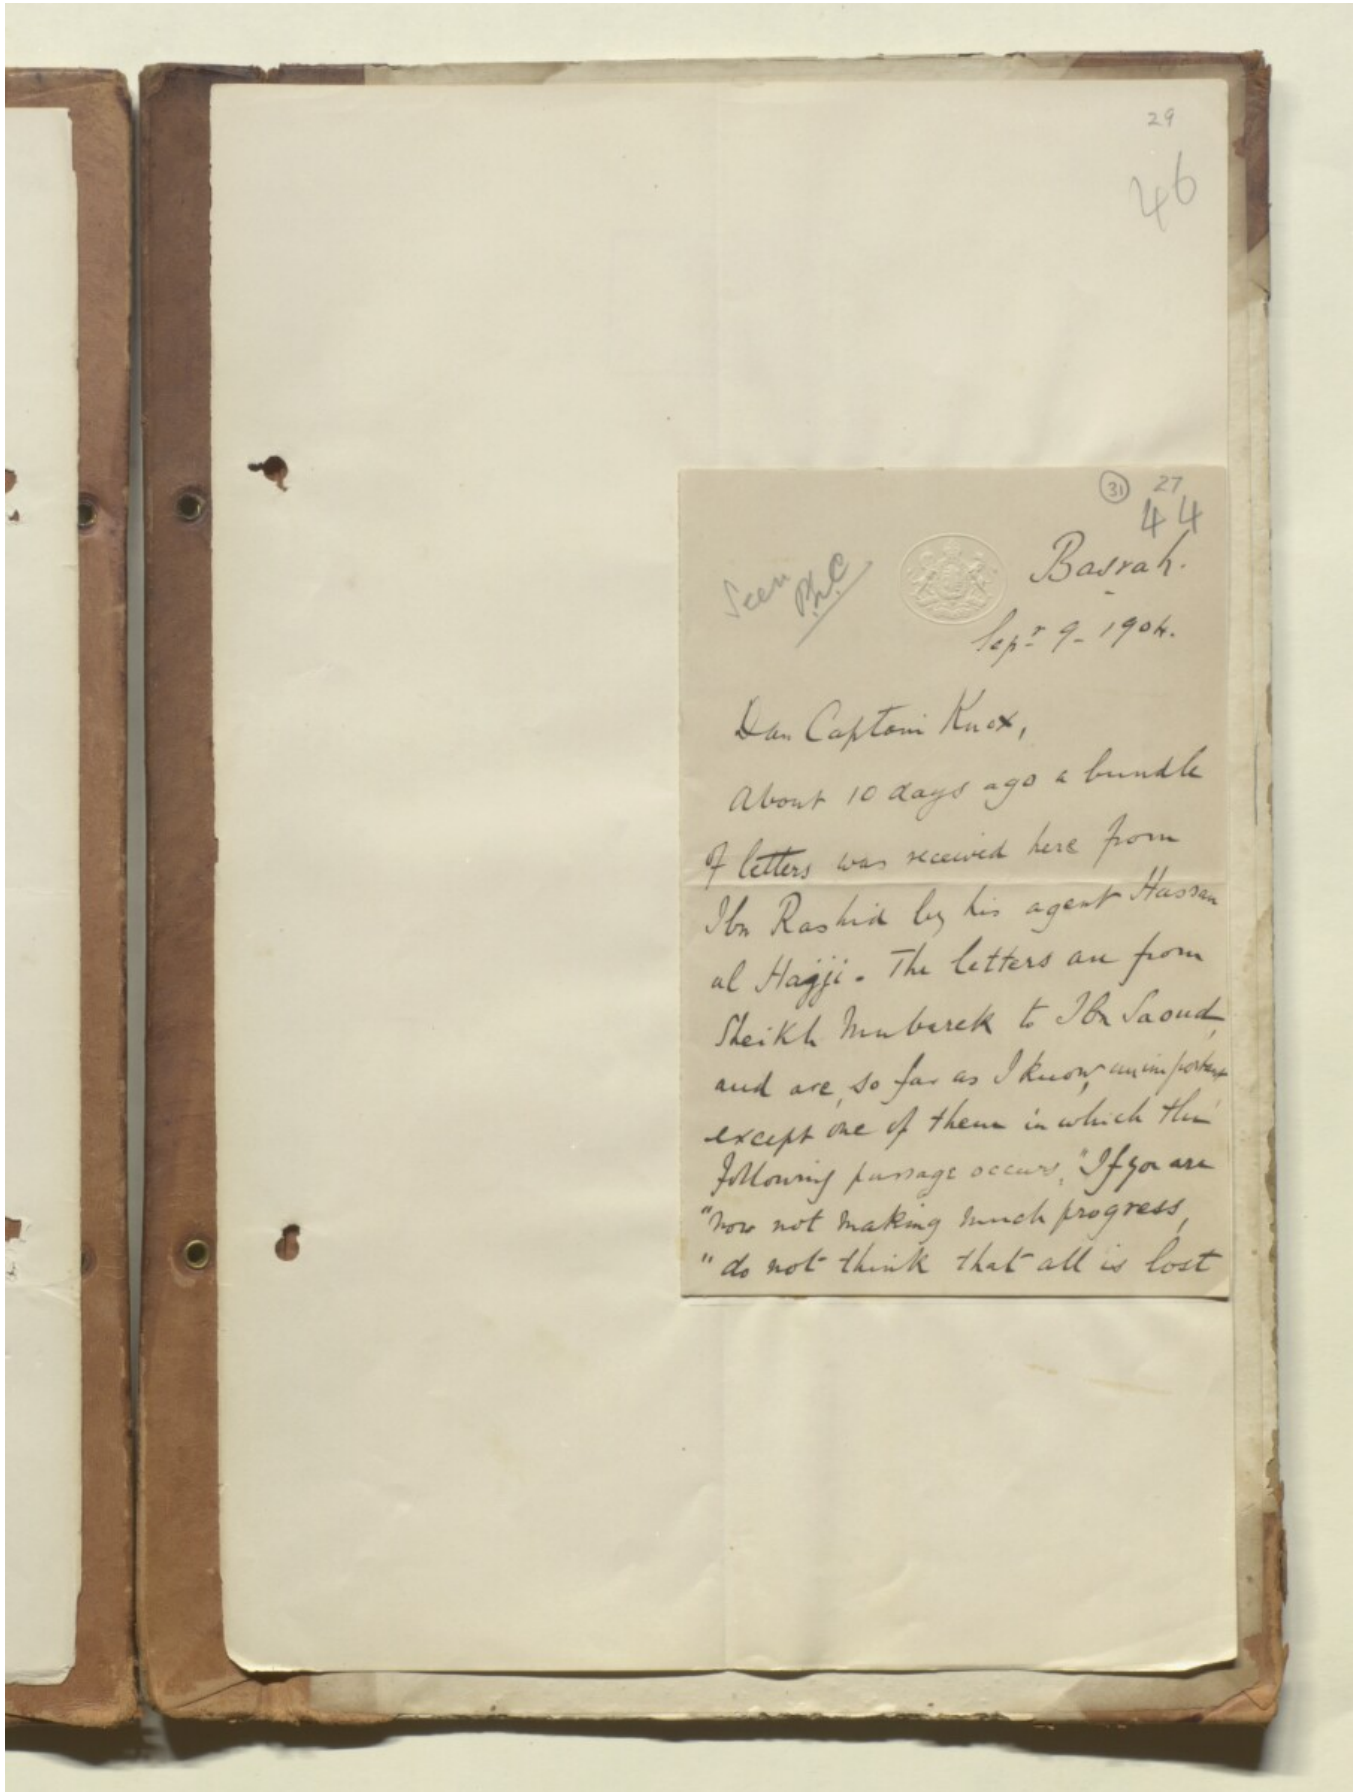 29
46
31 27
44
Seen
PZC
Basrah.
Sepr 9 - 1904.
Dear Captain Knox,
About 10 days ago a bundle
of letters was received here from
Ibn Rashid by his agent Hassan
al Hajji. The letters are from
Sheikh Mubarek to Ibn Saoud,
and are, so far as I know, unimportant
except one of them in which the
following passage occurs, "If you are
"now not making much progress,
"do not think that all is lost